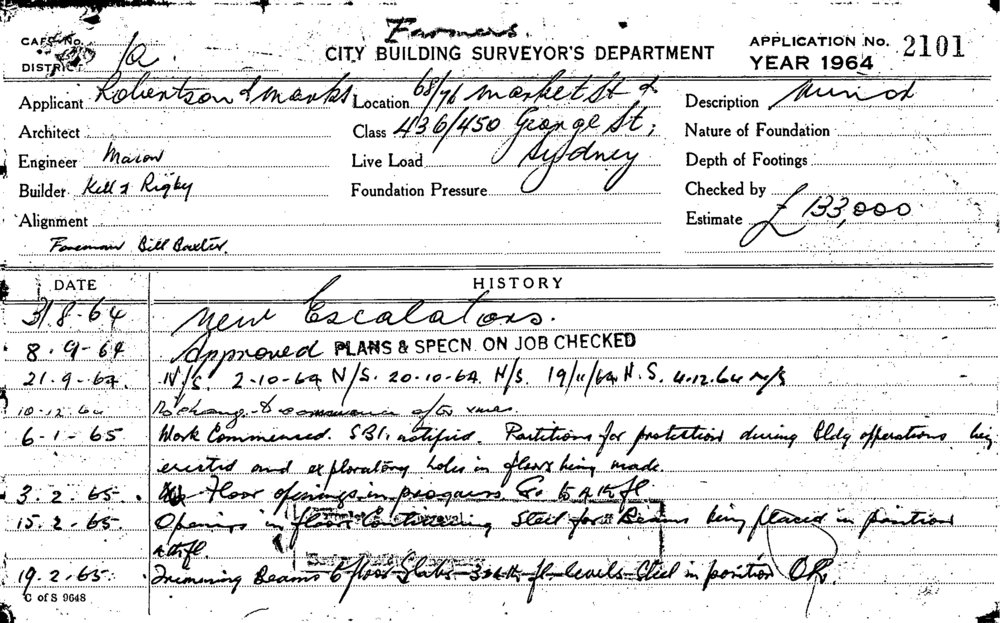 Farmers.
CARD No.
DISTRICT 1a
CITY BUILDING SURVEYOR'S DEPARTMENT
APPLICATION No. 2101
YEAR 1964
Applicant Robertson & Marks Location 68/76 Market St & Description
Architect Class 436/450 George St; Nature of Foundation
Engineer Mason Live Load Sydney Depth of Footings
Builder Kell & Rigby Foundation Pressure Checked by
Alignment Estimate £133,000
Foreman Bill Baxter.
DATE HISTORY
31.8-64 New Escalators.
8.9-64 Approved PLANS & SPECN. ON JOB CHECKED
21.9-64. N/S. 2-10-64 N/S. 20-10-64. N/S. 19/11/64 N.S. 4.12.64 N/S
10.12.64 No change to commence after xmas.
6-1-65 Work Commenced. SBI. notified. Partitions for protection during Bldg operations being
erected and exploratory holes in floors being made.
3.2.65 Floor openings in progress to 4th fl
15.2-65 Openings in floors Continuing Steel for Beams being placed in position
4th fl.
19.2.65. Trimming Beams & floor Slabs 3 & 4th fl levels Steel in position OK.
C of S 9648